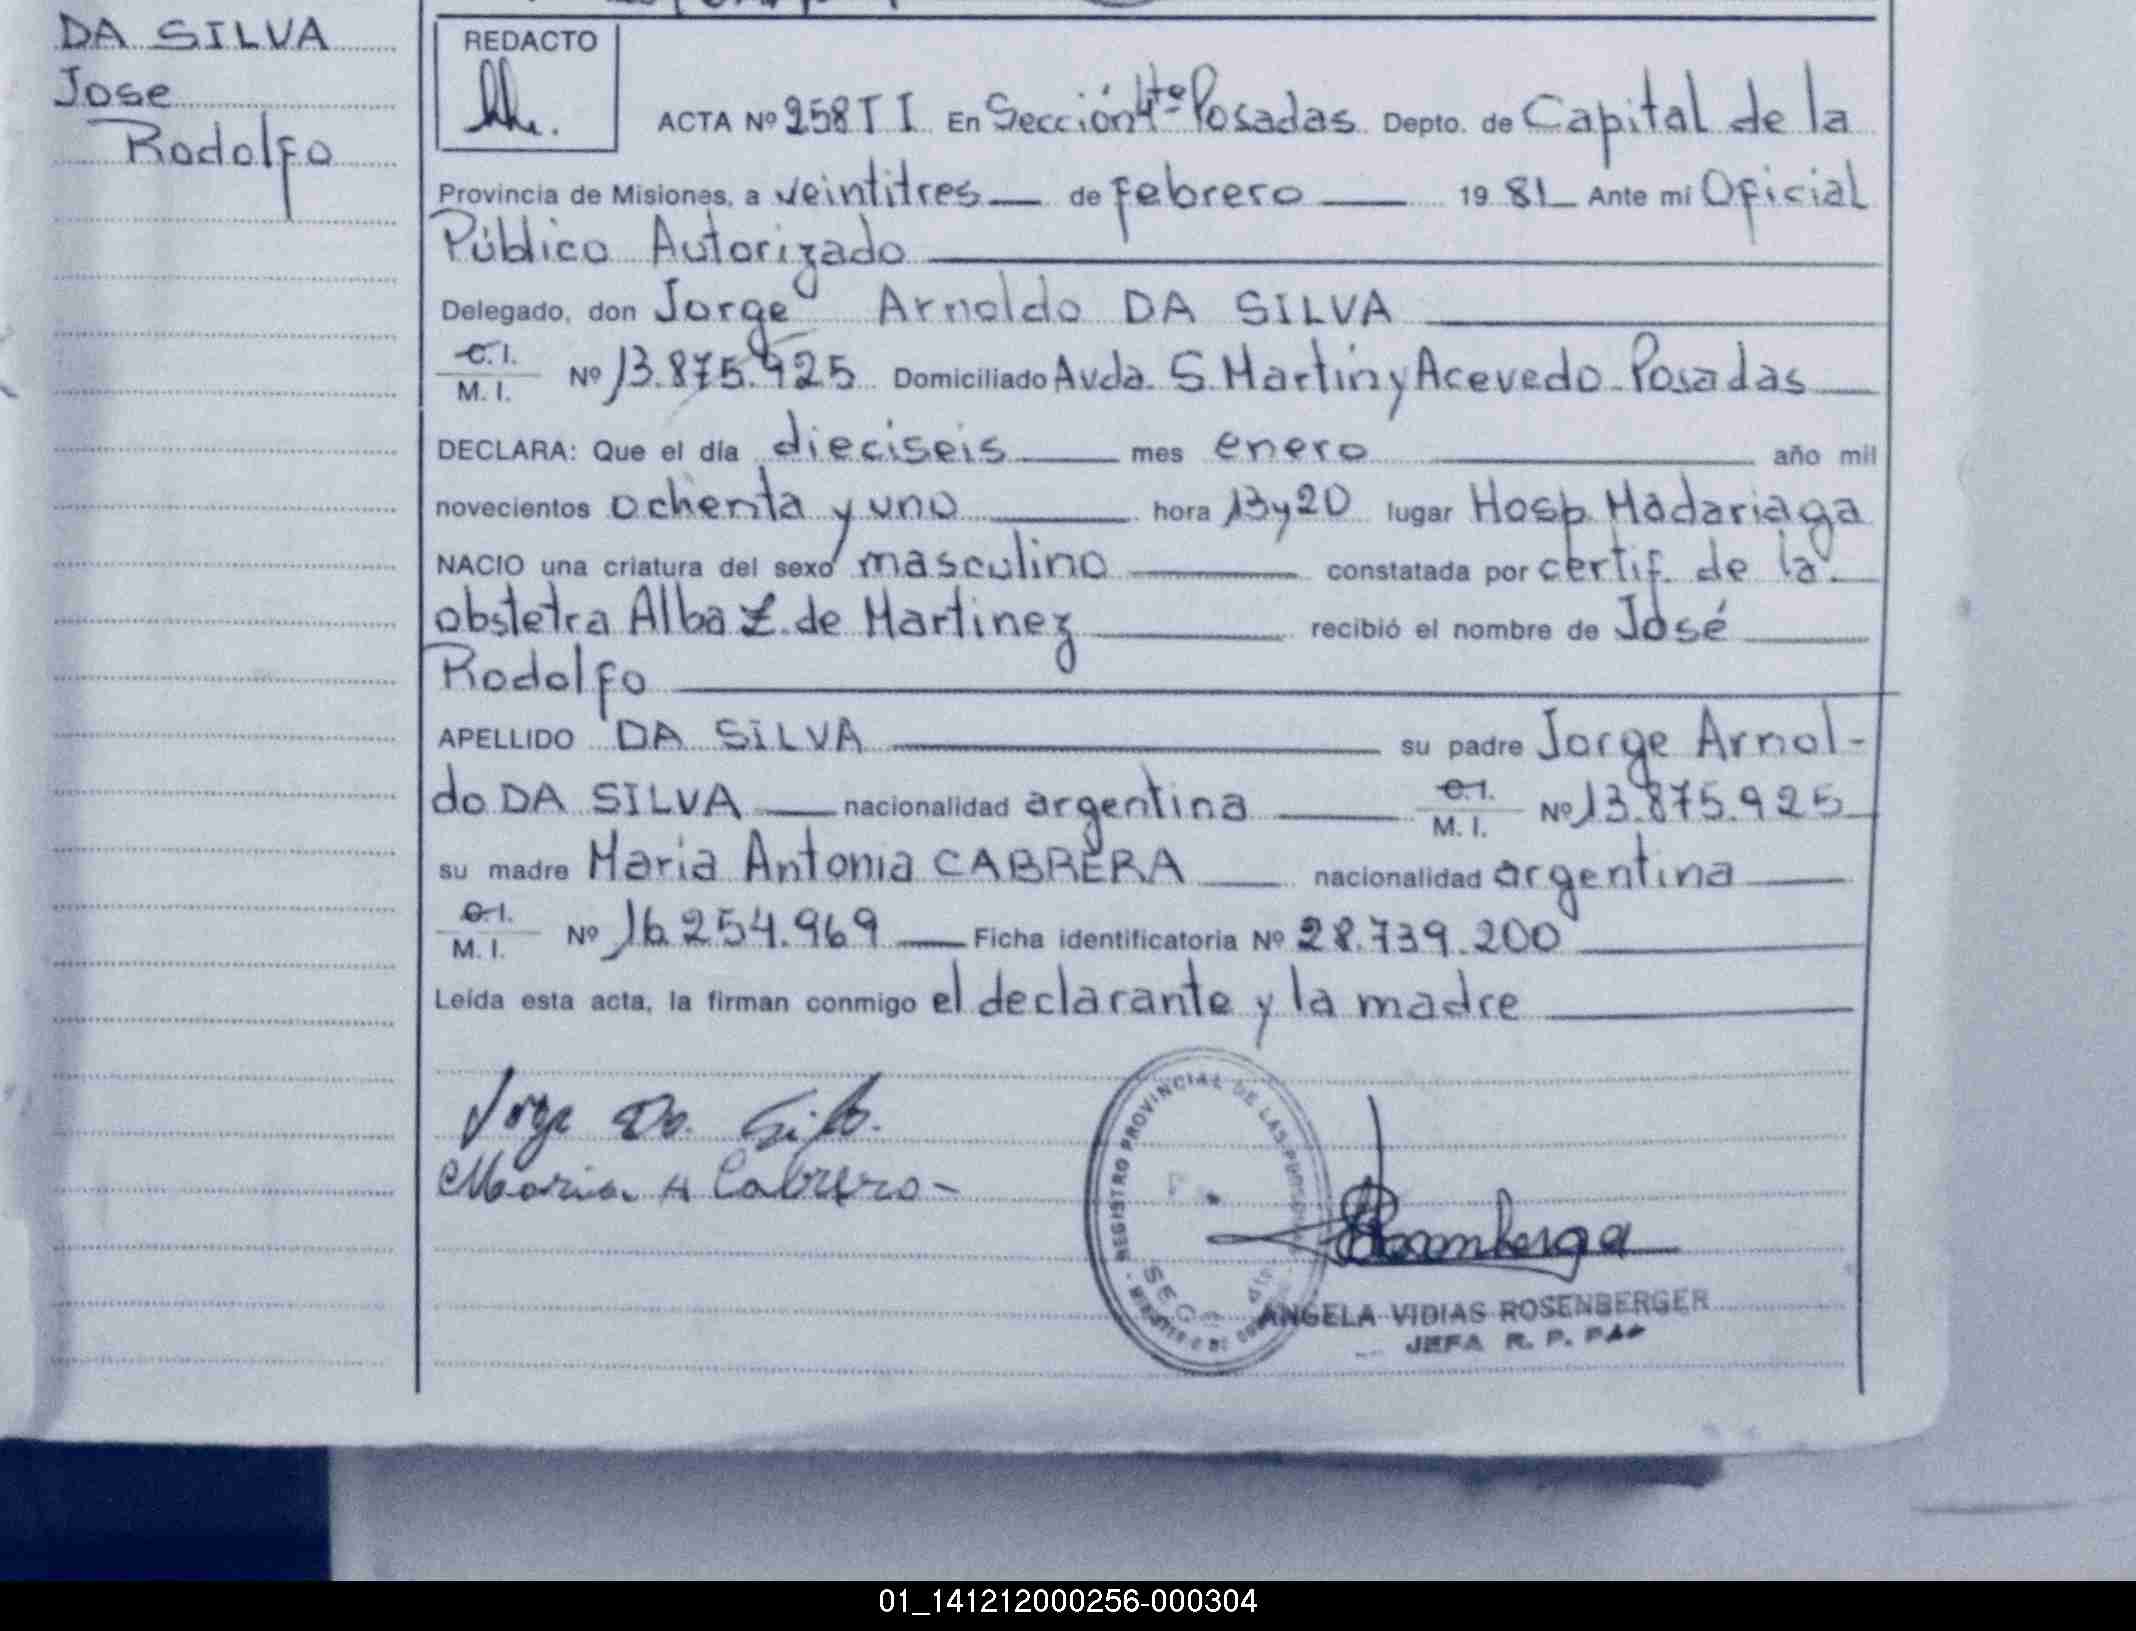 DA SILVA
Jose
Rodolfo
REDACTO
ACTA Nº 258 T I En Sección 4ta Posadas Depto. de Capital de la
Provincia de Misiones, a veintitres de febrero 19 81 Ante mi Oficial
Público Autorizado
Delegado, don Jorge Arnoldo DA SILVA
C.I.
M. I. Nº 13.875.925 Domiciliado Avda. S. Martin y Acevedo Posadas
DECLARA: Que el día dieciseis mes enero año mil
novecientos ochenta y uno hora 13 y 20 lugar Hosp. Madariaga
NACIO una criatura del sexo masculino constatada por certif. de la
obstetra Alba Z. de Martinez recibió el nombre de José
Rodolfo
APELLIDO DA SILVA su padre Jorge Arnol-
do DA SILVA nacionalidad argentina C.I.
M. I. Nº 13.875.925
su madre Maria Antonia CABRERA nacionalidad argentina
C.I.
M. I. Nº 16.254.969 Ficha identificatoria Nº 28.739.200
Leída esta acta, la firman conmigo el declarante y la madre
Jorge Da Silva.
Maria A Cabrera-
REGISTRO PROVINCIAL DE LAS PERSONAS
ANGELA VIDIAS ROSENBERGER
JEFA R. P.
01_141212000256-000304